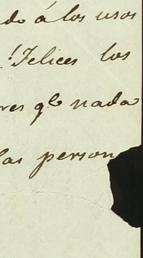 do á los usos
¡Felices los
res qe nada
las person